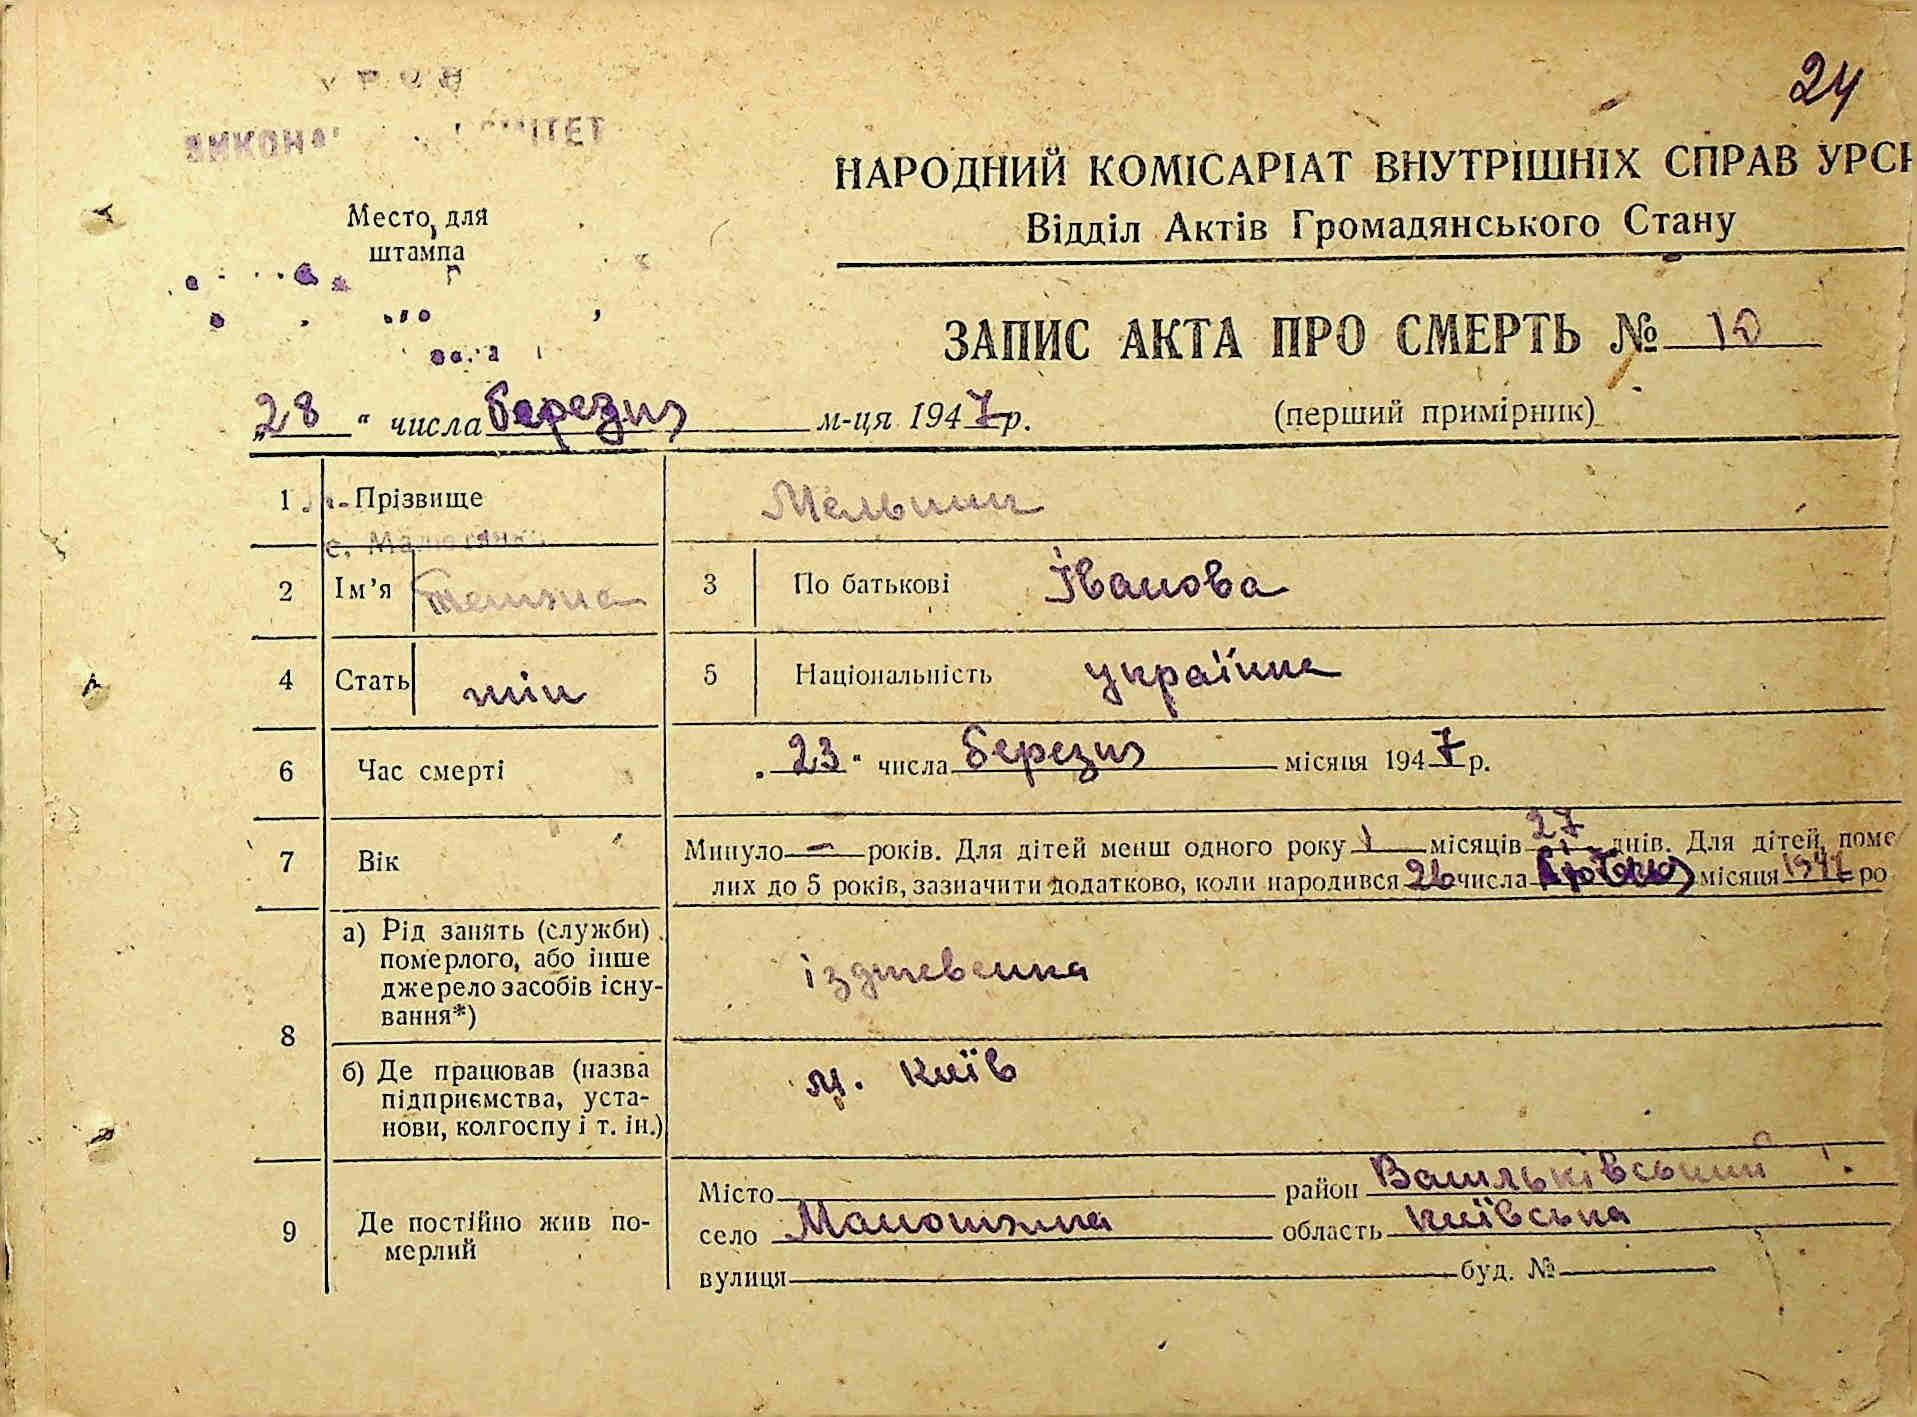 24
ВИКОНА
НАРОДНИЙ КОМІСАРІАТ ВНУТРІШНІХ СПРАВ УРСР
Відділ Актів Громадянського Стану
Место для
штампа
ЗАПИС АКТА ПРО СМЕРТЬ № 10
„28“ числа березня м-ця 1947 р.
(перший примірник)
1 Прізвище Мельник
с. Малютянка
2 Ім’я Тетяна 3 По батькові Іванова
4 Стать жін 5 Національність українка
6 Час смерті „23“ числа березня місяця 1947 р.
7 Вік Минуло — років. Для дітей менш одного року 1 місяців 27 днів. Для дітей, поме
лих до 5 років, зазначити додатково, коли народився 26 числа місяця 1947 ро
8 а) Рід занять (служби)
померлого, або інше
джерело засобів існу-
вання*)
іздтевенка
б) Де працював (назва
підприємства, уста-
нови, колгоспу і т. ін.)
м. Київ
9 Де постійно жив по-
мерлий
Місто район Васильківський
село Малютянка область Київська
вулиця буд. №